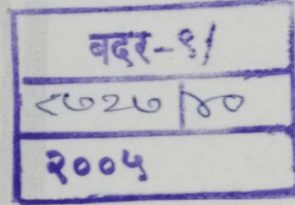 बदर-९/
८७२७/४०
२००५